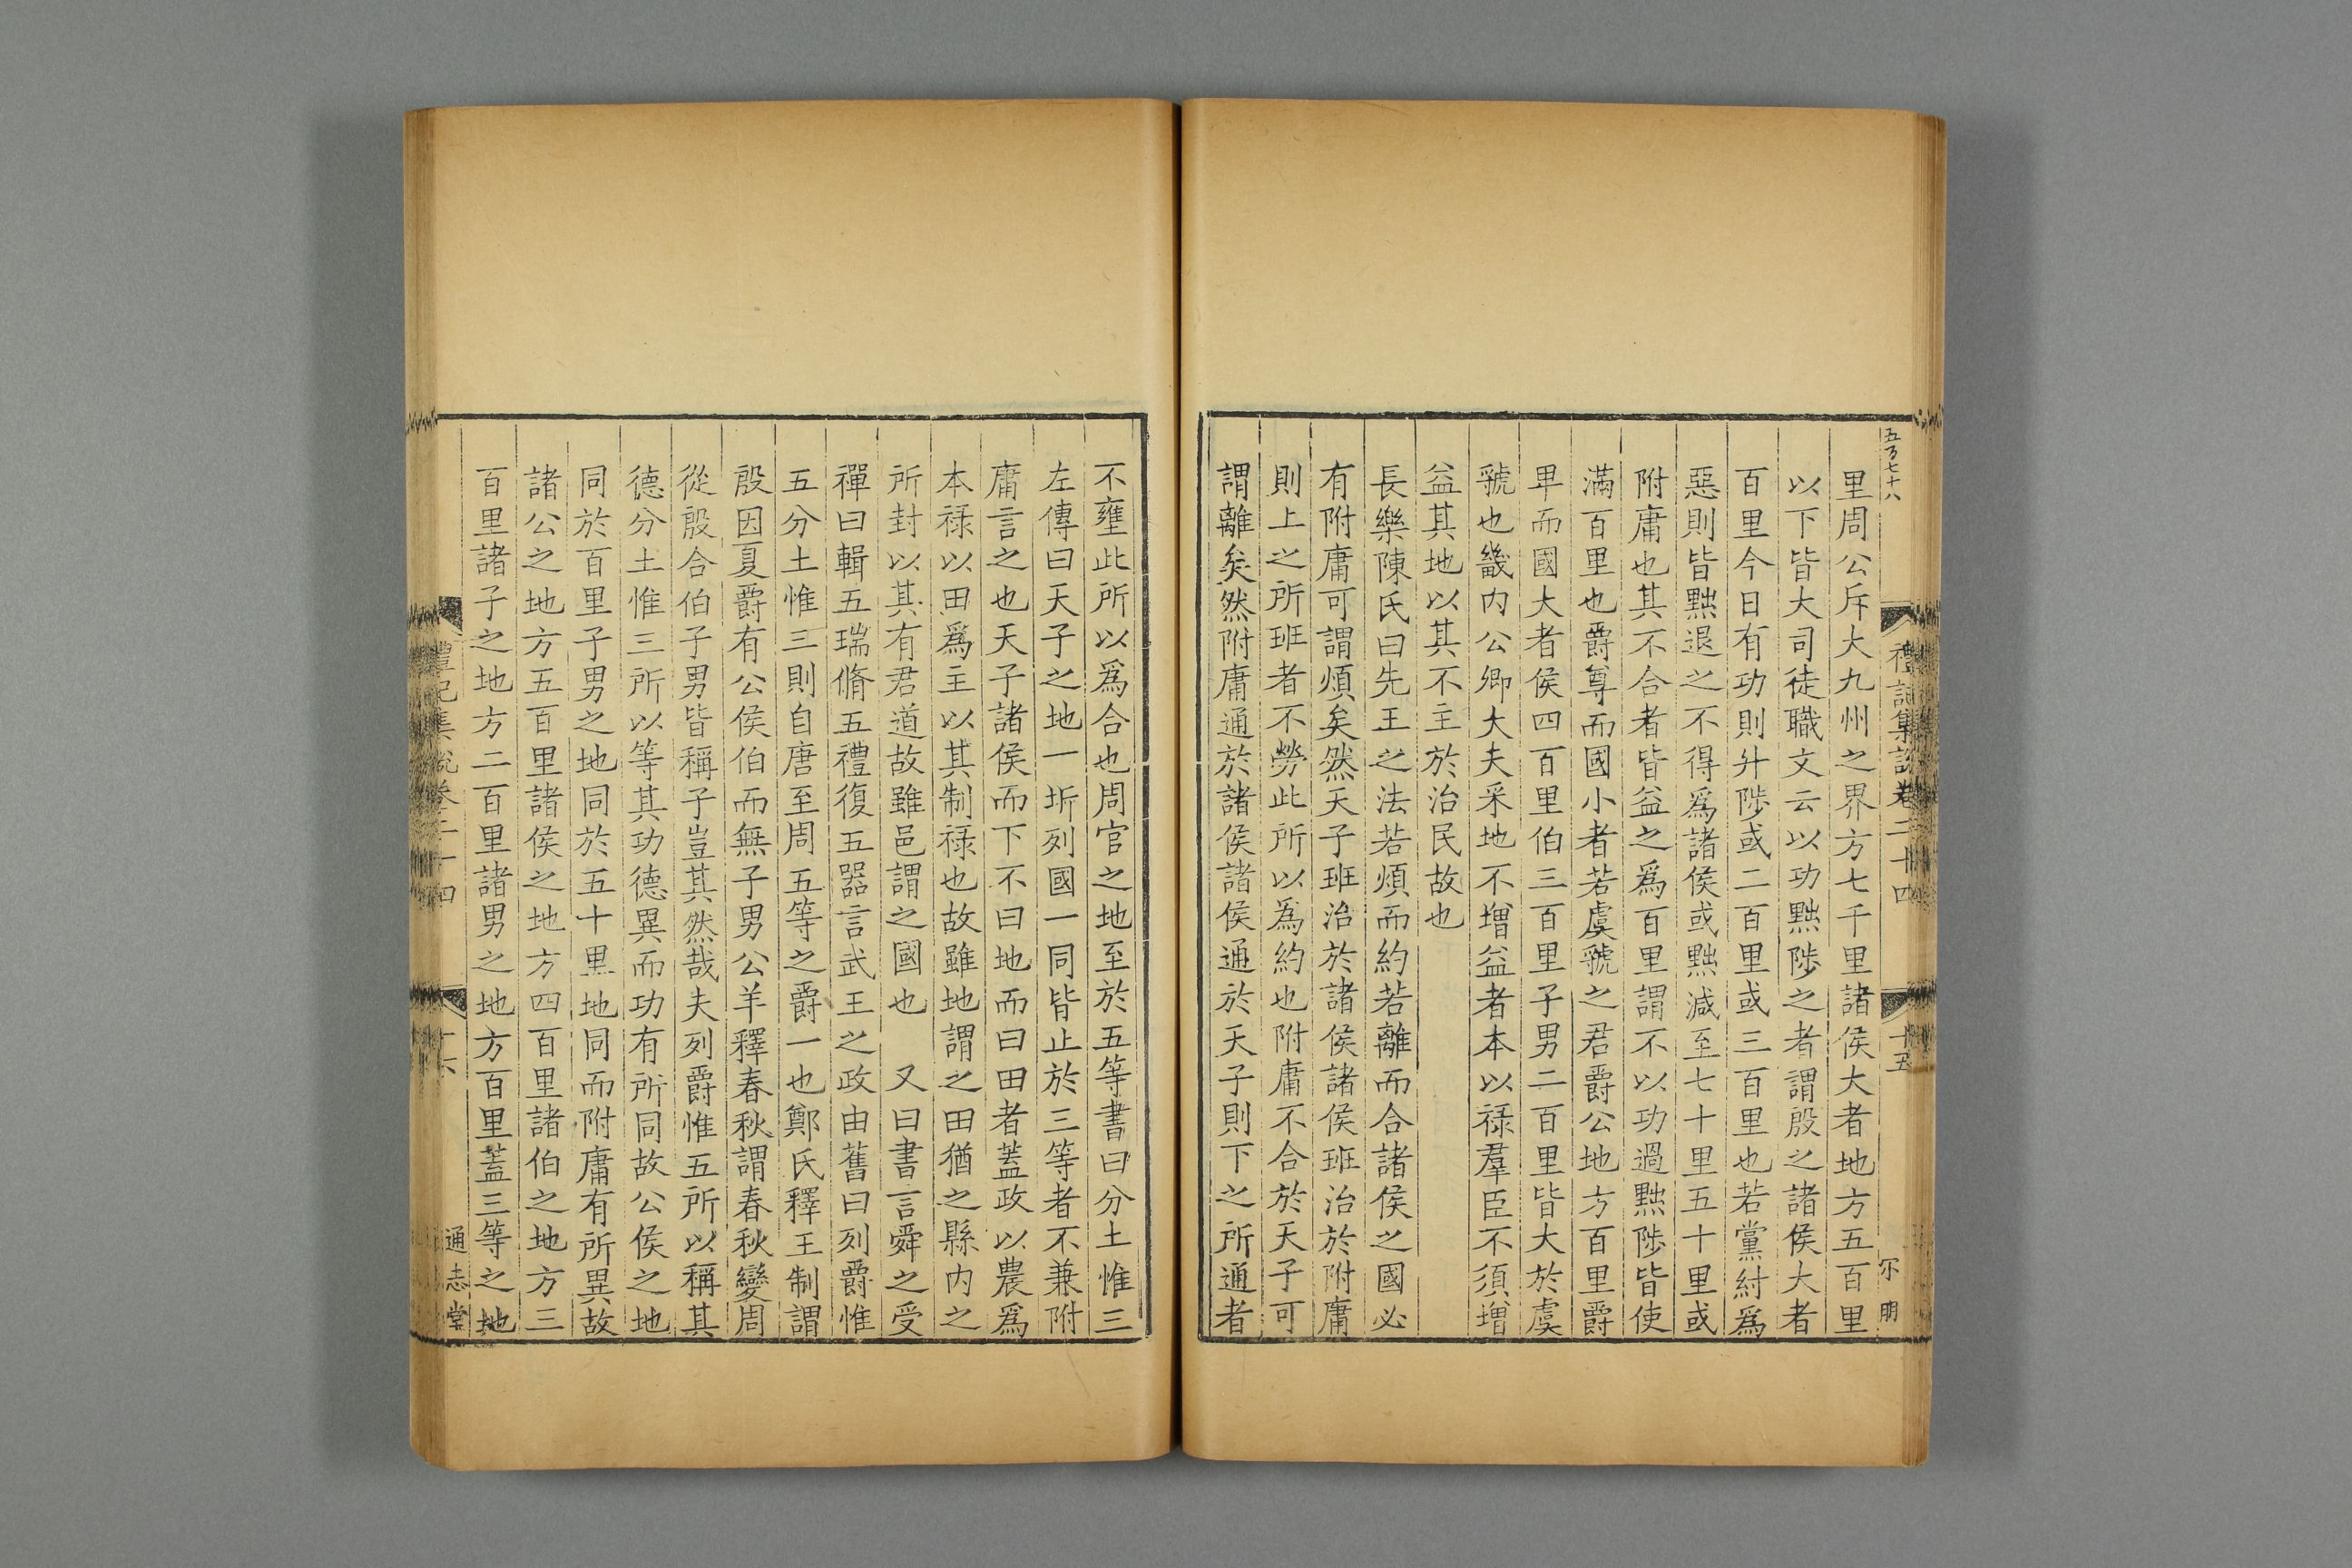 五百七十八
禮記集說卷二十四
十五
明
里周公斥大九州之界方七千里諸侯大者地方五百里
以下皆大司徒職文云以功黜陟之者謂殷之諸侯大者
百里今日有功則升陟或二百里或三百里也若黨紂爲
惡則皆黜退之不得爲諸侯或黜減至七十里五十里或
附庸也其不合者皆益之爲百里謂不以功過黜陟皆使
滿百里也爵尊而國小者若虞虢之君爵公地方百里爵
卑而國大者侯四百里伯三百里子男二百里皆大於虞
虢也畿內公卿大夫采地不增益者本以祿羣臣不須增
益其地以其不主於治民故也
長樂陳氏曰先王之法若煩而約若離而合諸侯之國必
有附庸可謂煩矣然天子班治於諸侯諸侯班治於附庸
則上之所班者不勞此所以爲約也附庸不合於天子可
謂離矣然附庸通於諸侯諸侯通於天子則下之所通者
不壅此所以爲合也周官之地至於五等書曰分土惟三
左傳曰天子之地一圻列國一同皆止於三等者不兼附
庸言之也天子諸侯而下不曰地而曰田者蓋政以農爲
本祿以田爲主以其制祿也故雖地謂之田猶之縣內之
所封以其有君道故雖邑謂之國也　又曰書言舜之受
禪曰輯五瑞脩五禮復五器言武王之政由舊曰列爵惟
五分土惟三則自唐至周五等之爵一也鄭氏釋王制謂
殷因夏爵有公侯伯而無子男公羊釋春秋謂春秋變周
從殷合伯子男皆稱子豈其然哉夫列爵惟五所以稱其
德分土惟三所以等其功德異而功有所同故公侯之地
同於百里子男之地同於五十里地同而附庸有所異故
諸公之地方五百里諸侯之地方四百里諸伯之地方三
百里諸子之地方二百里諸男之地方百里蓋三等之地
禮記集說卷二十四
十六
通志堂